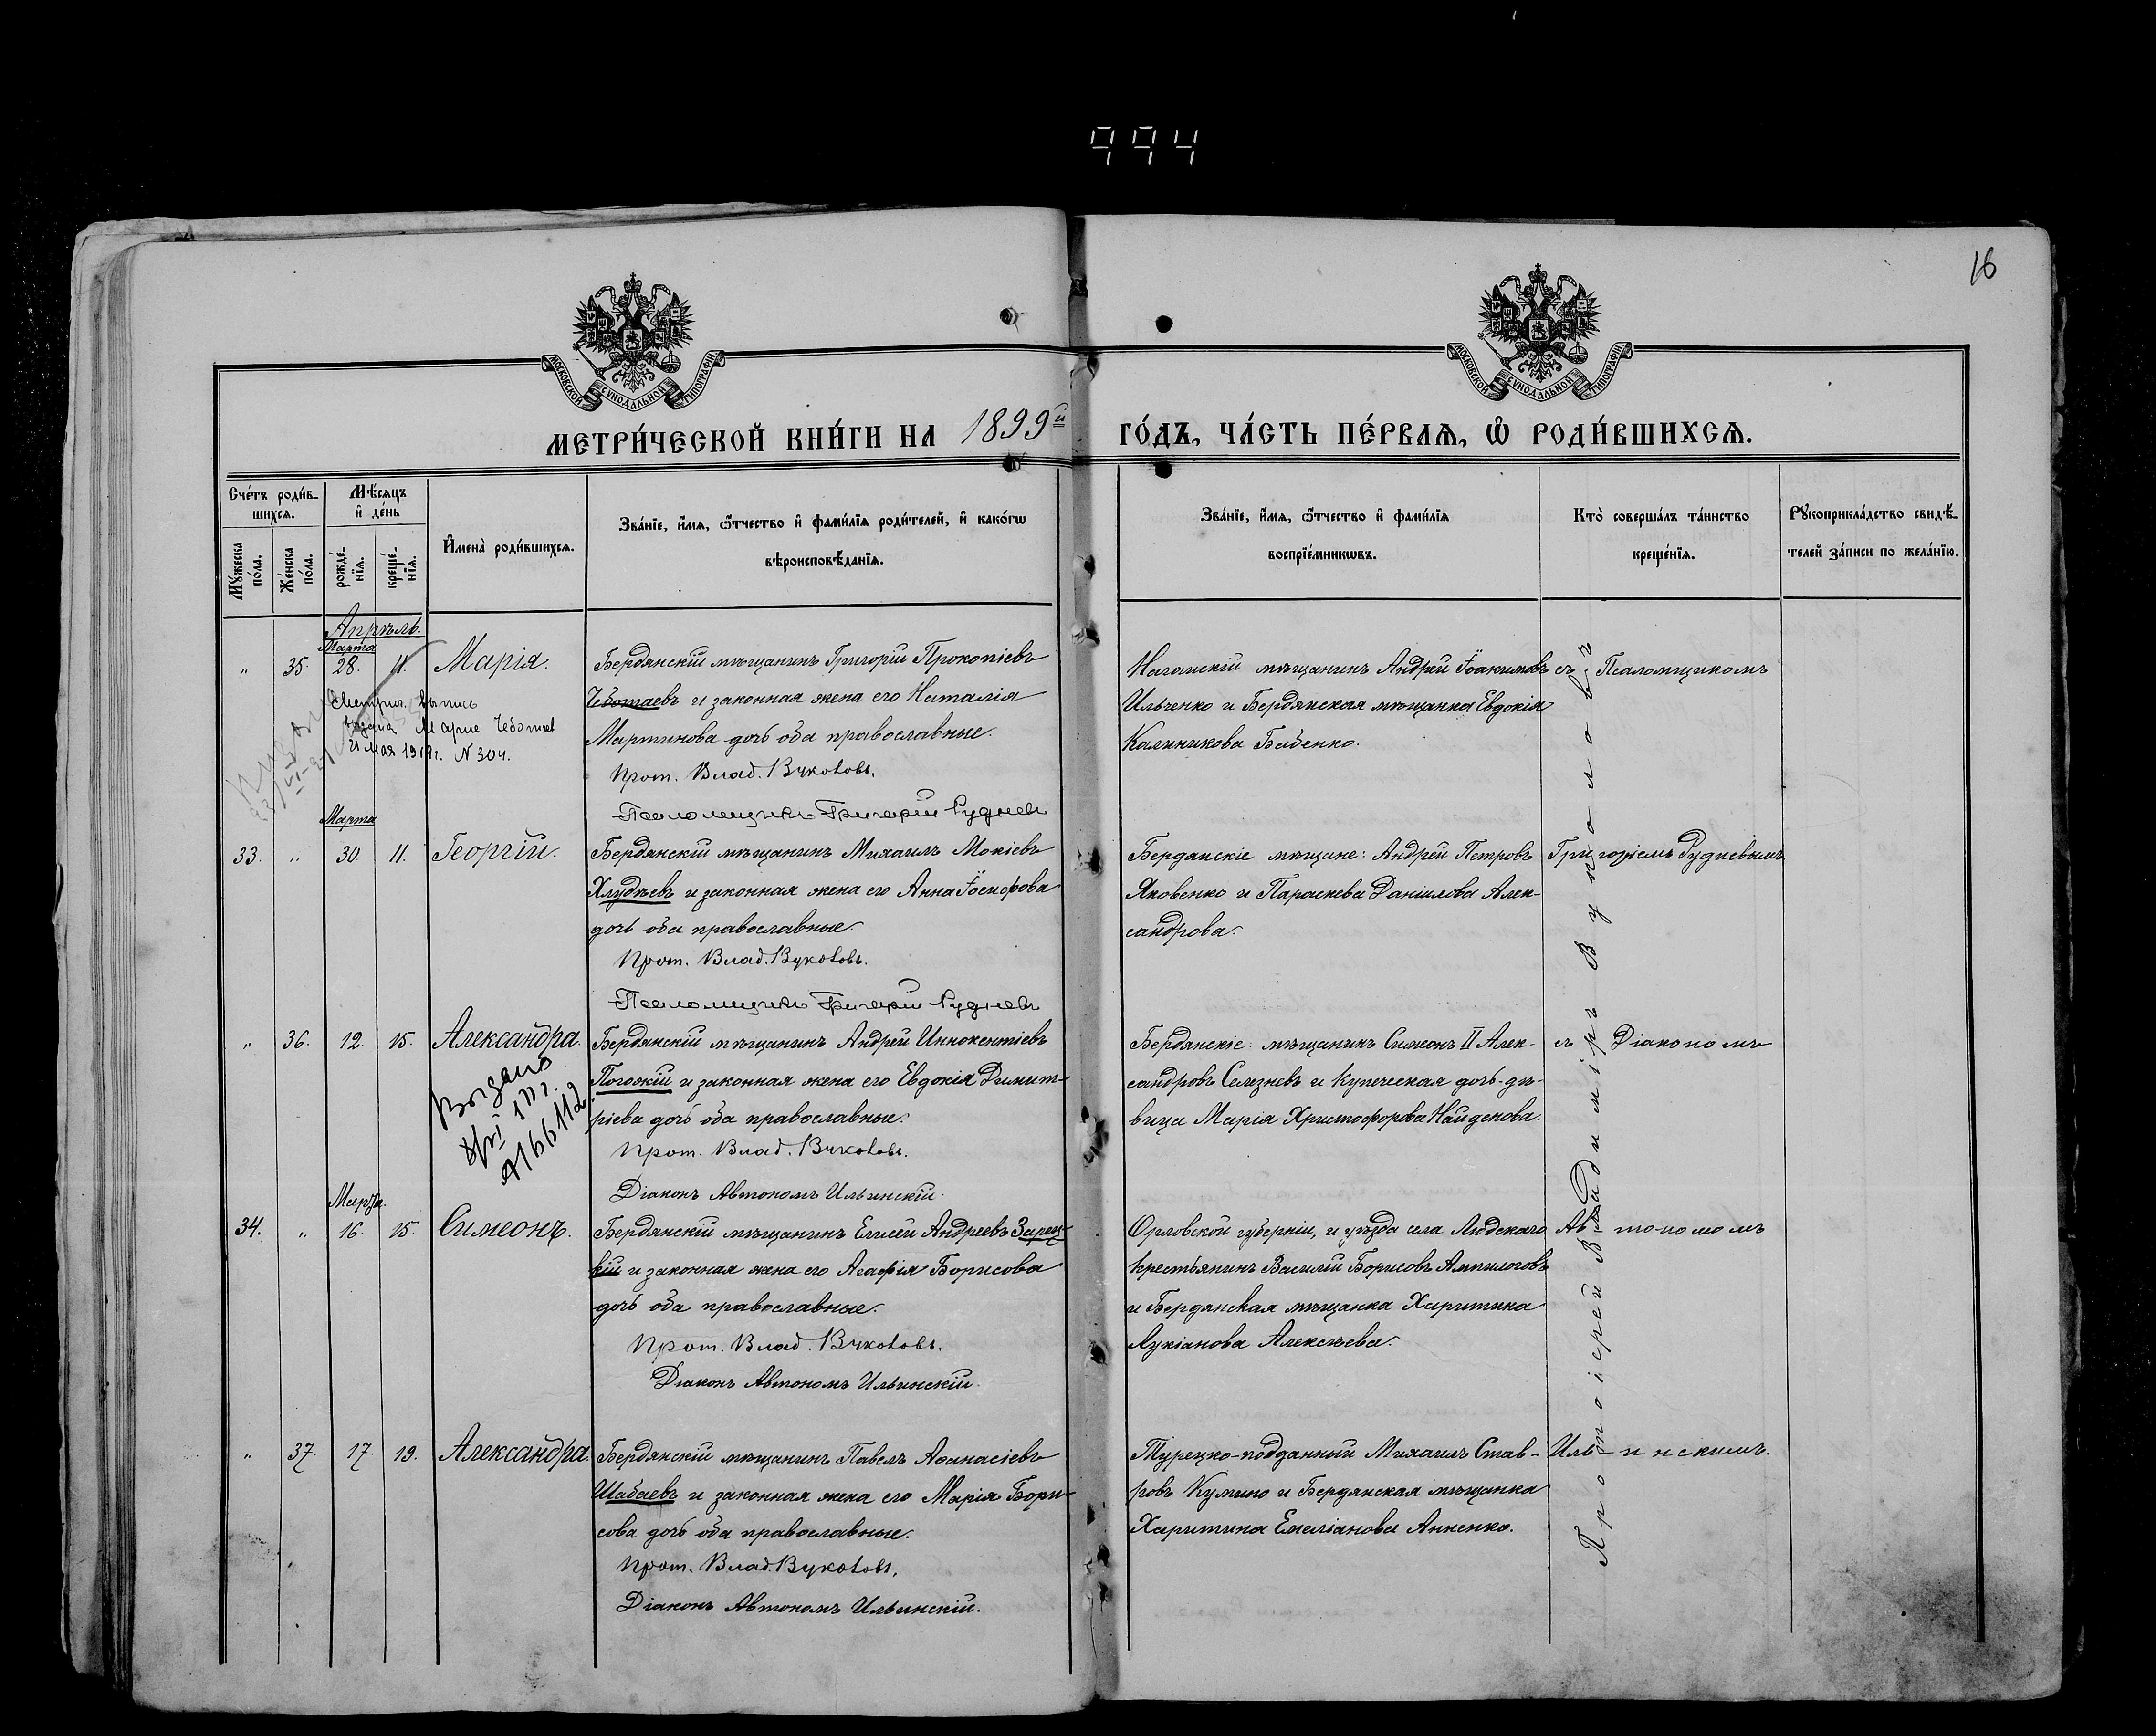 994
16
МОСКОВСКОЙ СѴНОДАЛЬНОЙ ТИПОГРАФІИ
МОСКОВСКОЙ СѴНОДАЛЬНОЙ ТИПОГРАФІИ
МЕТРИ́ЧЕСКОЙ КНИ́ГИ НА 1899й ГО́ДЪ, ЧА́СТЬ ПЕ́РВАЯ, Ѡ҆ РОДИ́ВШИХСЯ.
Сче́тъ роди́в-
шихся.
Мѣ́сяцъ
и҆ де́нь
Мꙋ́жеска
по́ла.
Же́нска
по́ла.
рожде́-
нїя.
креще́-
нїя.
И҆мена̀ роди́вшихся.
Зва́нїе, и҆́мя, ѻ҆́тчество и҆ фами́лїя роди́телей, и҆ како́гѡ
вѣроисповѣ́данїя.
Зва́нїе, и҆́мя, ѻ҆́тчество и҆ фами́лїя
воспрїе́мникѡвъ.
Кто̀ соверша́лъ та́инство
креще́нїя.
Рꙋкоприкла́дство свидѣ́-
телей за́писи по жела́нїю.
Апрѣль.
Марта
„ 35. 28. 11. Марія.
Бердянскій мѣщанинъ Григорій Прокопіевъ
Чеботаевъ и законная жена его Наталія
Мартинова дочь оба православные.
Прот. Влад. Вуколовъ.
Псаломщикъ Григорій Рудневъ
Метрич. выпись
выдана Марие Чеботаев
21 мая 1919г. N 304.
Андрей Іоакимовъ
Ильченко и Бердянская мѣщанка Евдокія
Калиникова Бабенко.
съ Псаломщикомъ
Марта
33. „ 30 11. Георгій.
Бердянскій мѣщанинъ Михаилъ Мокіевъ
Хлудѣевъ и законная жена его Анна Іосифова
дочь оба православные.
Прот. Влад. Вуколовъ.
Псаломщикъ Григорій Рудневъ
Бердянскіе мѣщане: Андрей Петровъ
Яковенко и Параскева Даніилова Алек-
сандрова.
Григоріемъ Рудневымъ
„ 36. 12. 15. Александра.
Бердянскій мѣщанинъ Андрей Иннокентіевъ
Погожій и законная жена его Евдокія Димит-
ріева дочь оба православные.
Прот. Влад. Вуколовъ.
Діаконъ Автономъ Ильинскій.
Выдано
166112
Бердянскіе: мѣщанинъ Симеонъ II Алек-
сандровъ Селезневъ и купеческая дочь-дѣ-
вица Марія Христофорова Найденова.
съ Діакономъ
Марта.
34. „ 16. 15. Симеонъ.
Бердянскій мѣщанинъ Елисей Андреевъ Зарец-
кій и законная жена его Агафія Борисова
дочь оба православные.
Прот. Влад. Вуколовъ.
Діаконъ Автономъ Ильинскій.
Орловской губерніи, и уѣзда села Людскаго
крестьянинъ Василій Борисовъ Ампилоговъ
и Бердянская мѣщанка Харитина
Лукіанова Алексѣева.
Автономомъ
„ 37. 17. 19. Александра.
Бердянскій мѣщанинъ Павелъ Аѳанасіевъ
Шабаевъ и законная жена его Марія Бори-
сова дочь оба православные.
Прот. Влад. Вуколовъ.
Діаконъ Автономъ Ильинскій.
Турецко-подданный Михаилъ Став-
ровъ Кумино и Бердянская мѣщанка
Харитина Емеліанова Анненко.
Ильинскимъ.
Протоіерей Владиміръ Вуколовъ